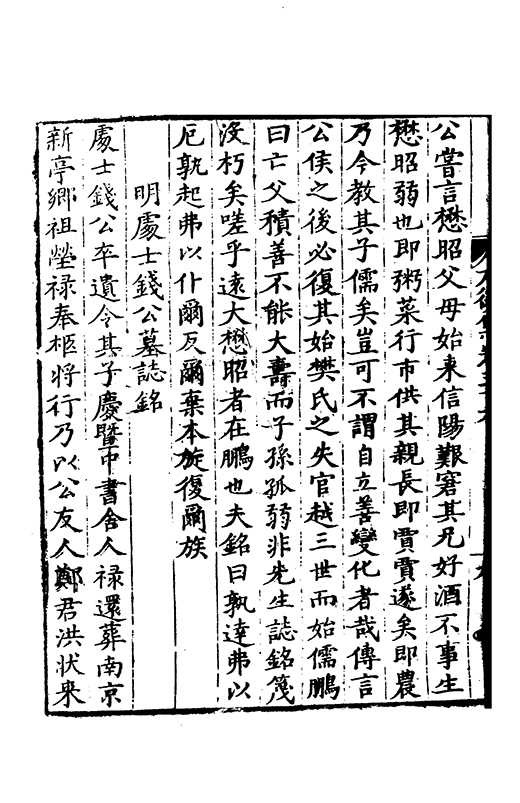 公嘗言懋昭父母始来信陽艱窘其兄好酒不事生
懋昭弱也即粥菜行市供其親長即賈賈遂矣即農
乃今教其子儒矣豈可不謂自立善變化者哉傳言
公侯之後必復其始樊氏之失官越三世而始儒鵬
曰亡父積善不能大壽而子孫孤弱非先生誌銘箋
没朽矣嗟乎逺大懋昭者在鵬也夫銘曰孰達弗以
厄孰起弗以仆爾反爾棄本旋復爾族
明處士錢公墓誌銘
處士錢公卒遺令其子慶暨中書舍人禄還葬南京
新亭鄉祖塋禄奉柩將行乃以公友人鄭君洪状来